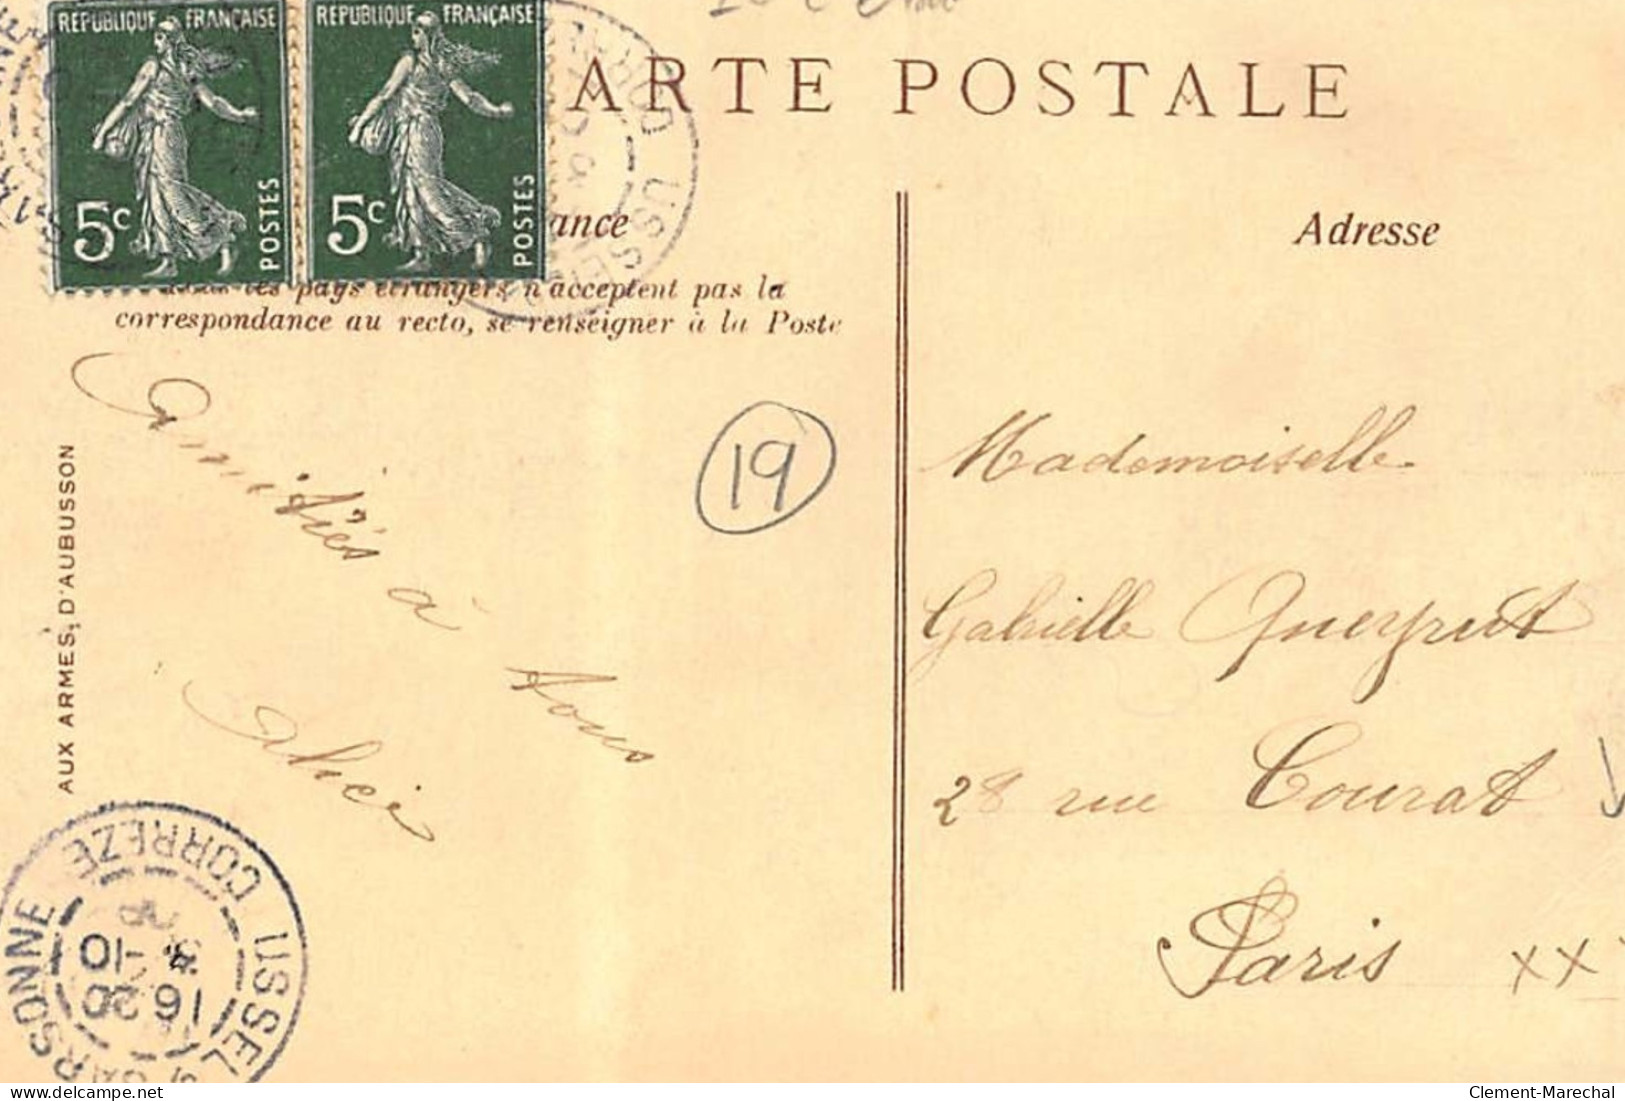 RÉPUBLIQUE FRANÇAISE
5c POSTES
RÉPUBLIQUE FRANÇAISE
5c POSTES
ARTE POSTALE
ance
Adresse
les pays étrangers n'acceptent pas la
correspondance au recto, se renseigner à la Poste
AUX ARMES, D'AUBUSSON
19
Amitiés à
tous
Alice
Mademoiselle
Gabrielle Queyrut
28 rue Courat
Paris XX
USSEL CORREZE
16 20
-10
USSEL
Clement-Marechal